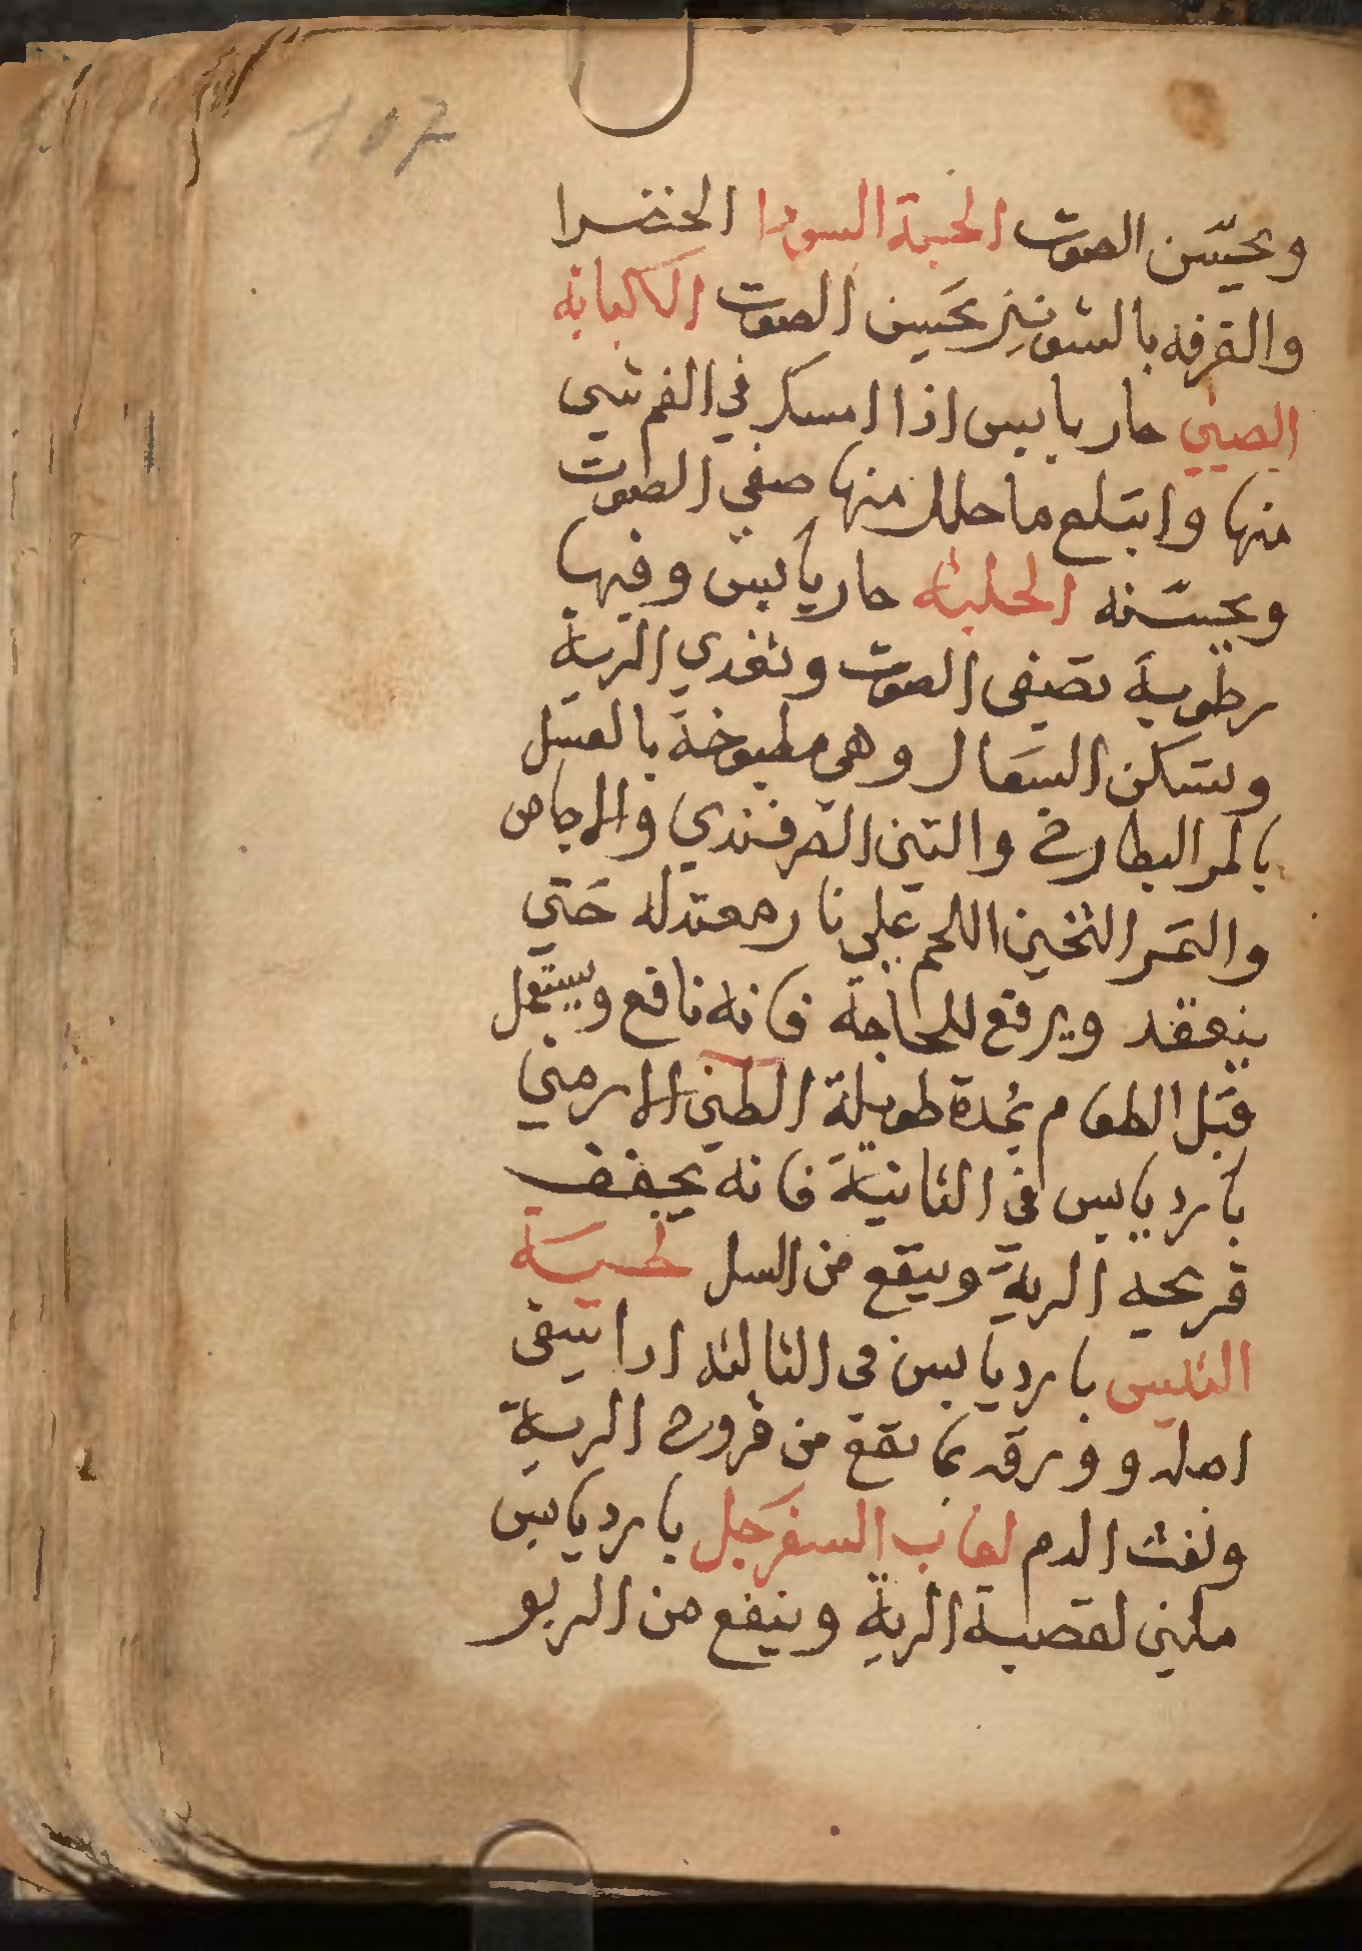 107
ويحسّن الصوت الحبة السودا الخضرا
والقرفه بالشونيز يحَسن الصوت الكبابة
الصيني حار يابس اذا امسك في الفم شي
منها وابتلع ما حلل منها صفي الصوت
ويحسّنه الحلبه حار يابس وفيها
رطوبة تصفى الصوت وتغدي الرية
وتسكن السَعال وهى مطبوخة بالعسل
بالمر البطارخ والتين التمرفندي والاجاص
والتمَر الثخين اللحم علي نار معتدله حَتي
ينعقد ويرفع للحاجة فانه نافع ويستعمل
قبل الطعام بمُدة طويلة الطين الارمني
بارد يابس في الثانية فانه يجفف
قريحة الرية وينفع من السل لحسَة
التيس بارد يابس في الثالثه اذا
اصله وورقه نفع من قروح الرية
ونفث الدم لعاب السفرجل بارد يابس
ملين لقصبة الرية وينفع من الربو